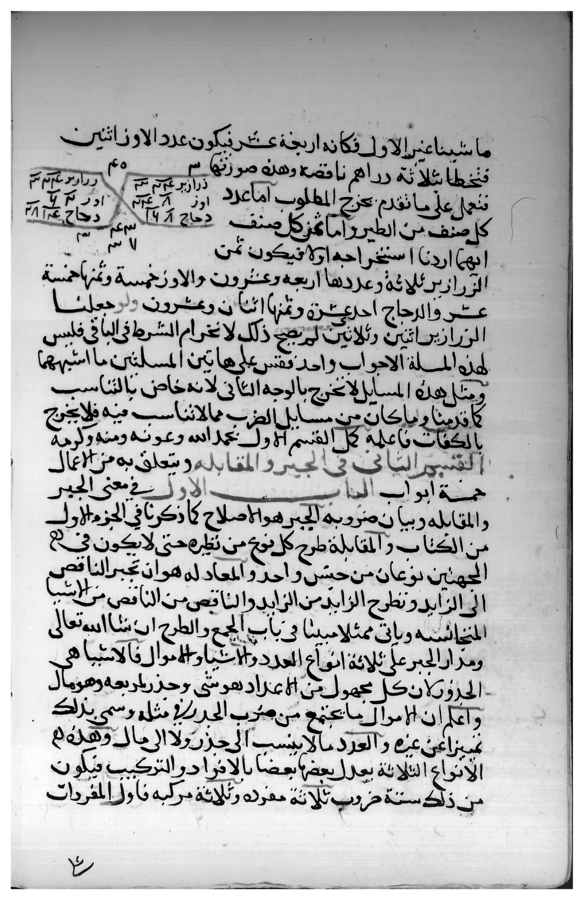 ما شينا غير الاول فكانه اربعة عشر فيكون عدد الاوز اثنين
فتخطا بثلاثة دراهم ناقصة وهذه صورتها
فنعمل على ما تقدم يخرج المطلوب اما عدد
كل صنف من الطير واما ثمن كل صنف
ايهما اردنا استخراجه اولا فيكون ثمن
الزرازير ثلاثة وعددها اربعة وعشرون والاوز خمسة وثمنها خمسة
عشر والدجاج احد عشرة وثمنها اثنان وعشرون ولو جعلنا
الزرازير اثنين وثلاثين لم يصح ذلك لانخرام الشرط في الباقي فليس
لهذه المسلة الا جواب واحد فقس على هاتين المسلتين ما اشبههما
ومثل هذه المسايل لا تخرج بالوجه الثاني لانه خاص بالتناسب
كما قدمنا وما كان من مسايل الضرب مما لا تناسب فيه فلا يخرج
بالكفات فاعلمه كمل القسم الاول بحمد الله وعونه ومنه وكرمه
القسم الثاني في الجبر والمقابلة وما يتعلق به من الاعمال
خمسة ابواب الباب الاول في معنى الجبر
والمقابلة وبيان ضروبه الجبر هو الاصلاح كما ذكرنا في الجزء الاول
من الكتاب والمقابلة طرح كل نوع من نظيره حتى لا يكون في
الجهتين نوعان من جنس واحد والمعادلة هو ان تجبر الناقص
الى الزايد وتطرح الزايد من الزايد والناقص من الناقص من الاشيا
المتجانسة وياتي ممثلا مبينا في باب الجمع والطرح ان شا الله تعالى
ومدار الجبر على ثلاثة انواع العدد والاشيا والاموال فالاشيا هي
الجذور لان كل مجهول من الاعداد هو شي وجذر لمربعه وهو مال
واعلم ان الاموال ما يجتمع من ضرب الجذر في مثله وسمي بذلك
تمييزا عن غيره والعدد ما لا ينسب الى جذر ولا الى مال وهذه
الانواع الثلاثة يعدل بعضها بعضا بالافراد والتركيب فيكون
من ذلك ستة ضروب ثلاثة مفردة وثلاثة مركبة فاول المفردات